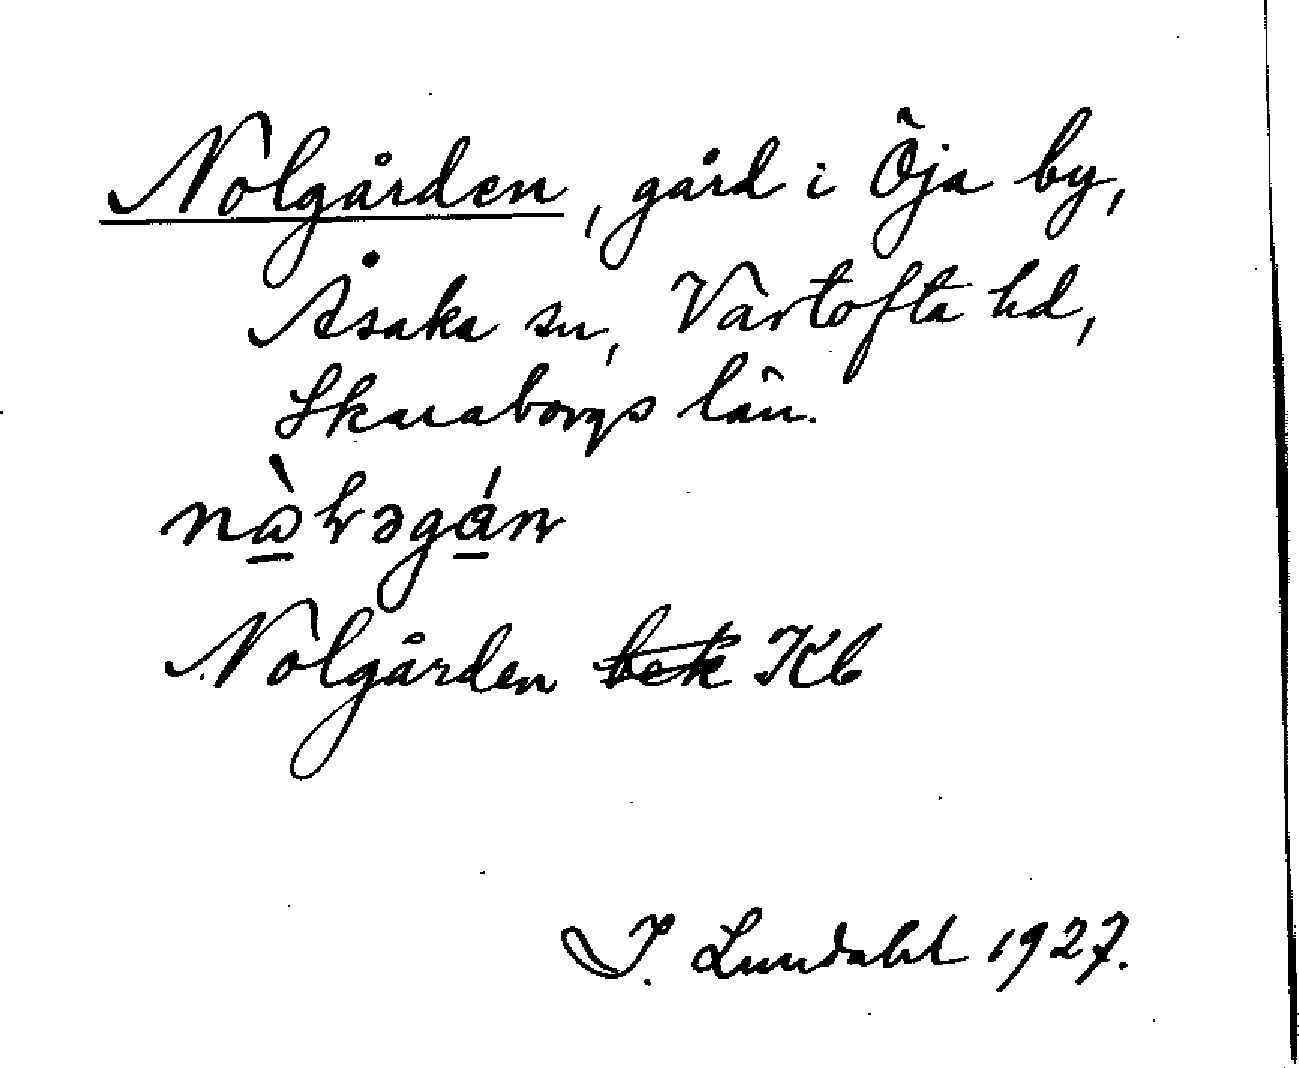 Nolgården, gård i Öja by,
Åsaka sn, Vartofta hd,
Skaraborgs län.
Nolgården ~~bek~~ Kb
I. Lundahl 1927.